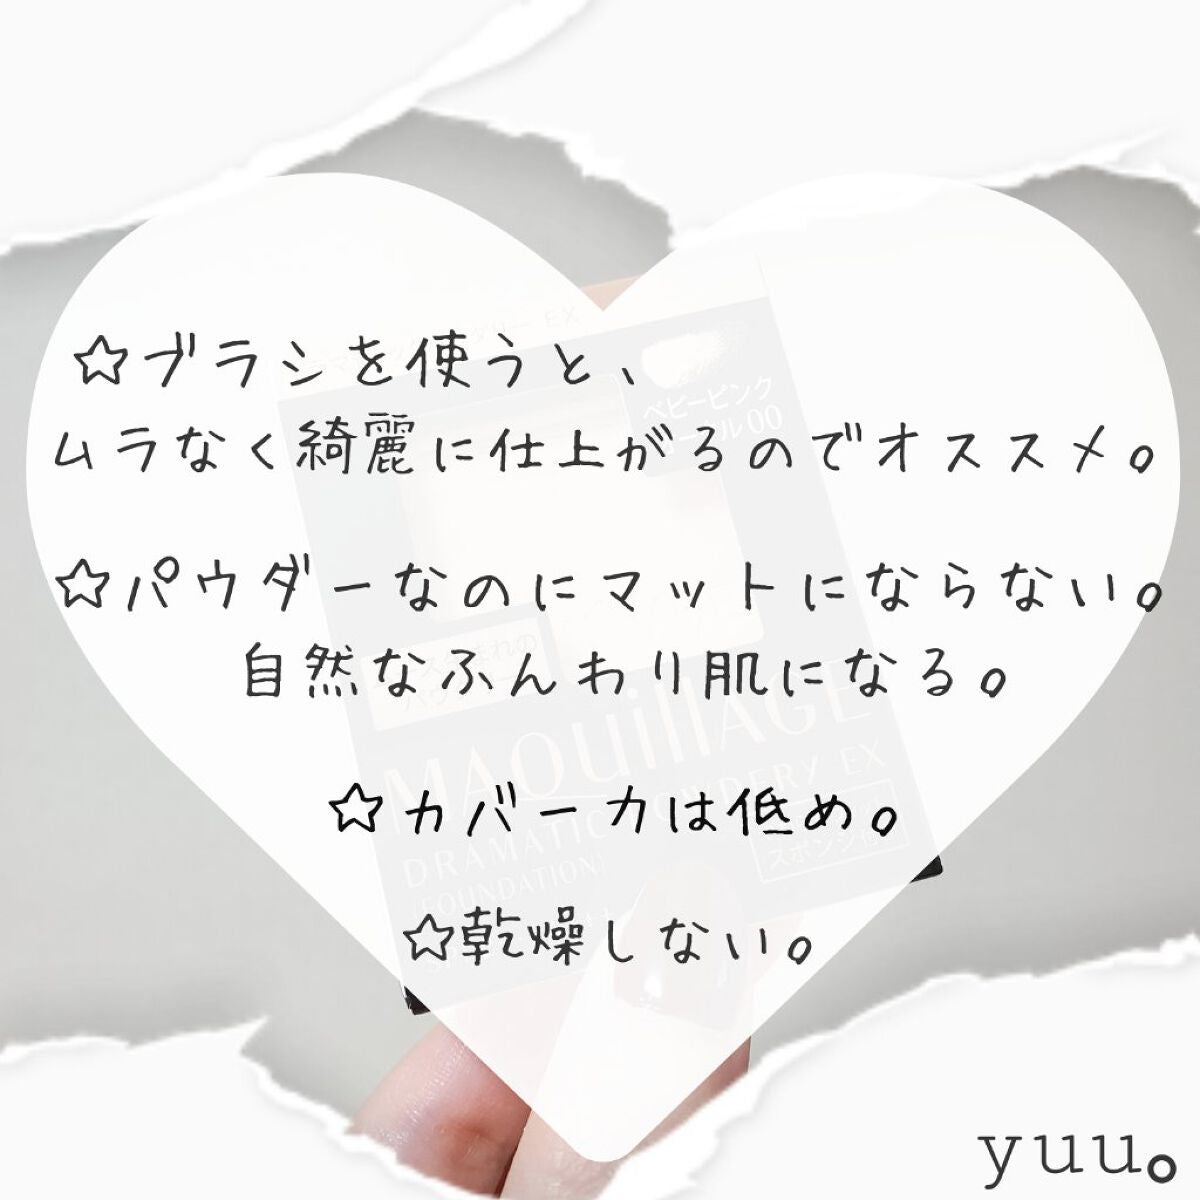 ☆ブラシを使うと、
ムラなく綺麗に仕上がるのでオススメ。
☆パウダーなのにマットにならない。
自然なふんわり肌になる。
☆カバー力は低め。
☆乾燥しない。
EX
ベビーピンク
00
MAQuillAGE
DRAMATIC POWDERY EX
(FOUNDATION)
yuu。